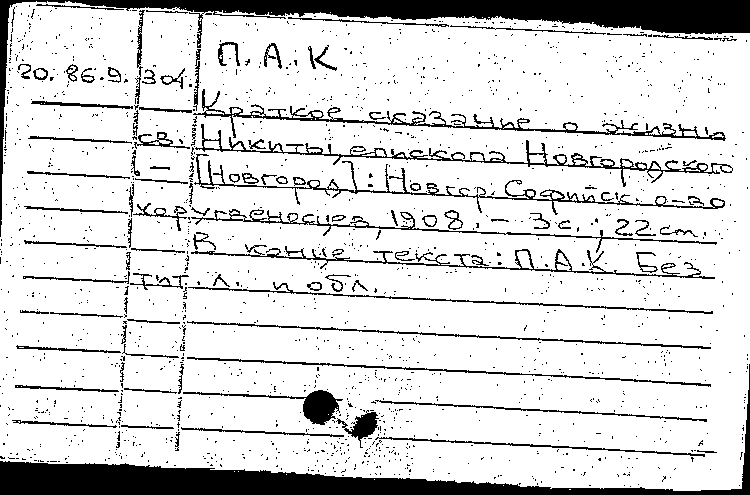 П.А.К
20.86.9.304.
Краткое сказание о жизни
св. Никиты, епископа Новгородского
.— [Новгород]: Новгор. Софийск. о-во
хоругвеносцев, 1908. — 3с.; 22см.
В конце текста: П.А.К. Без
тит. л. и обл.